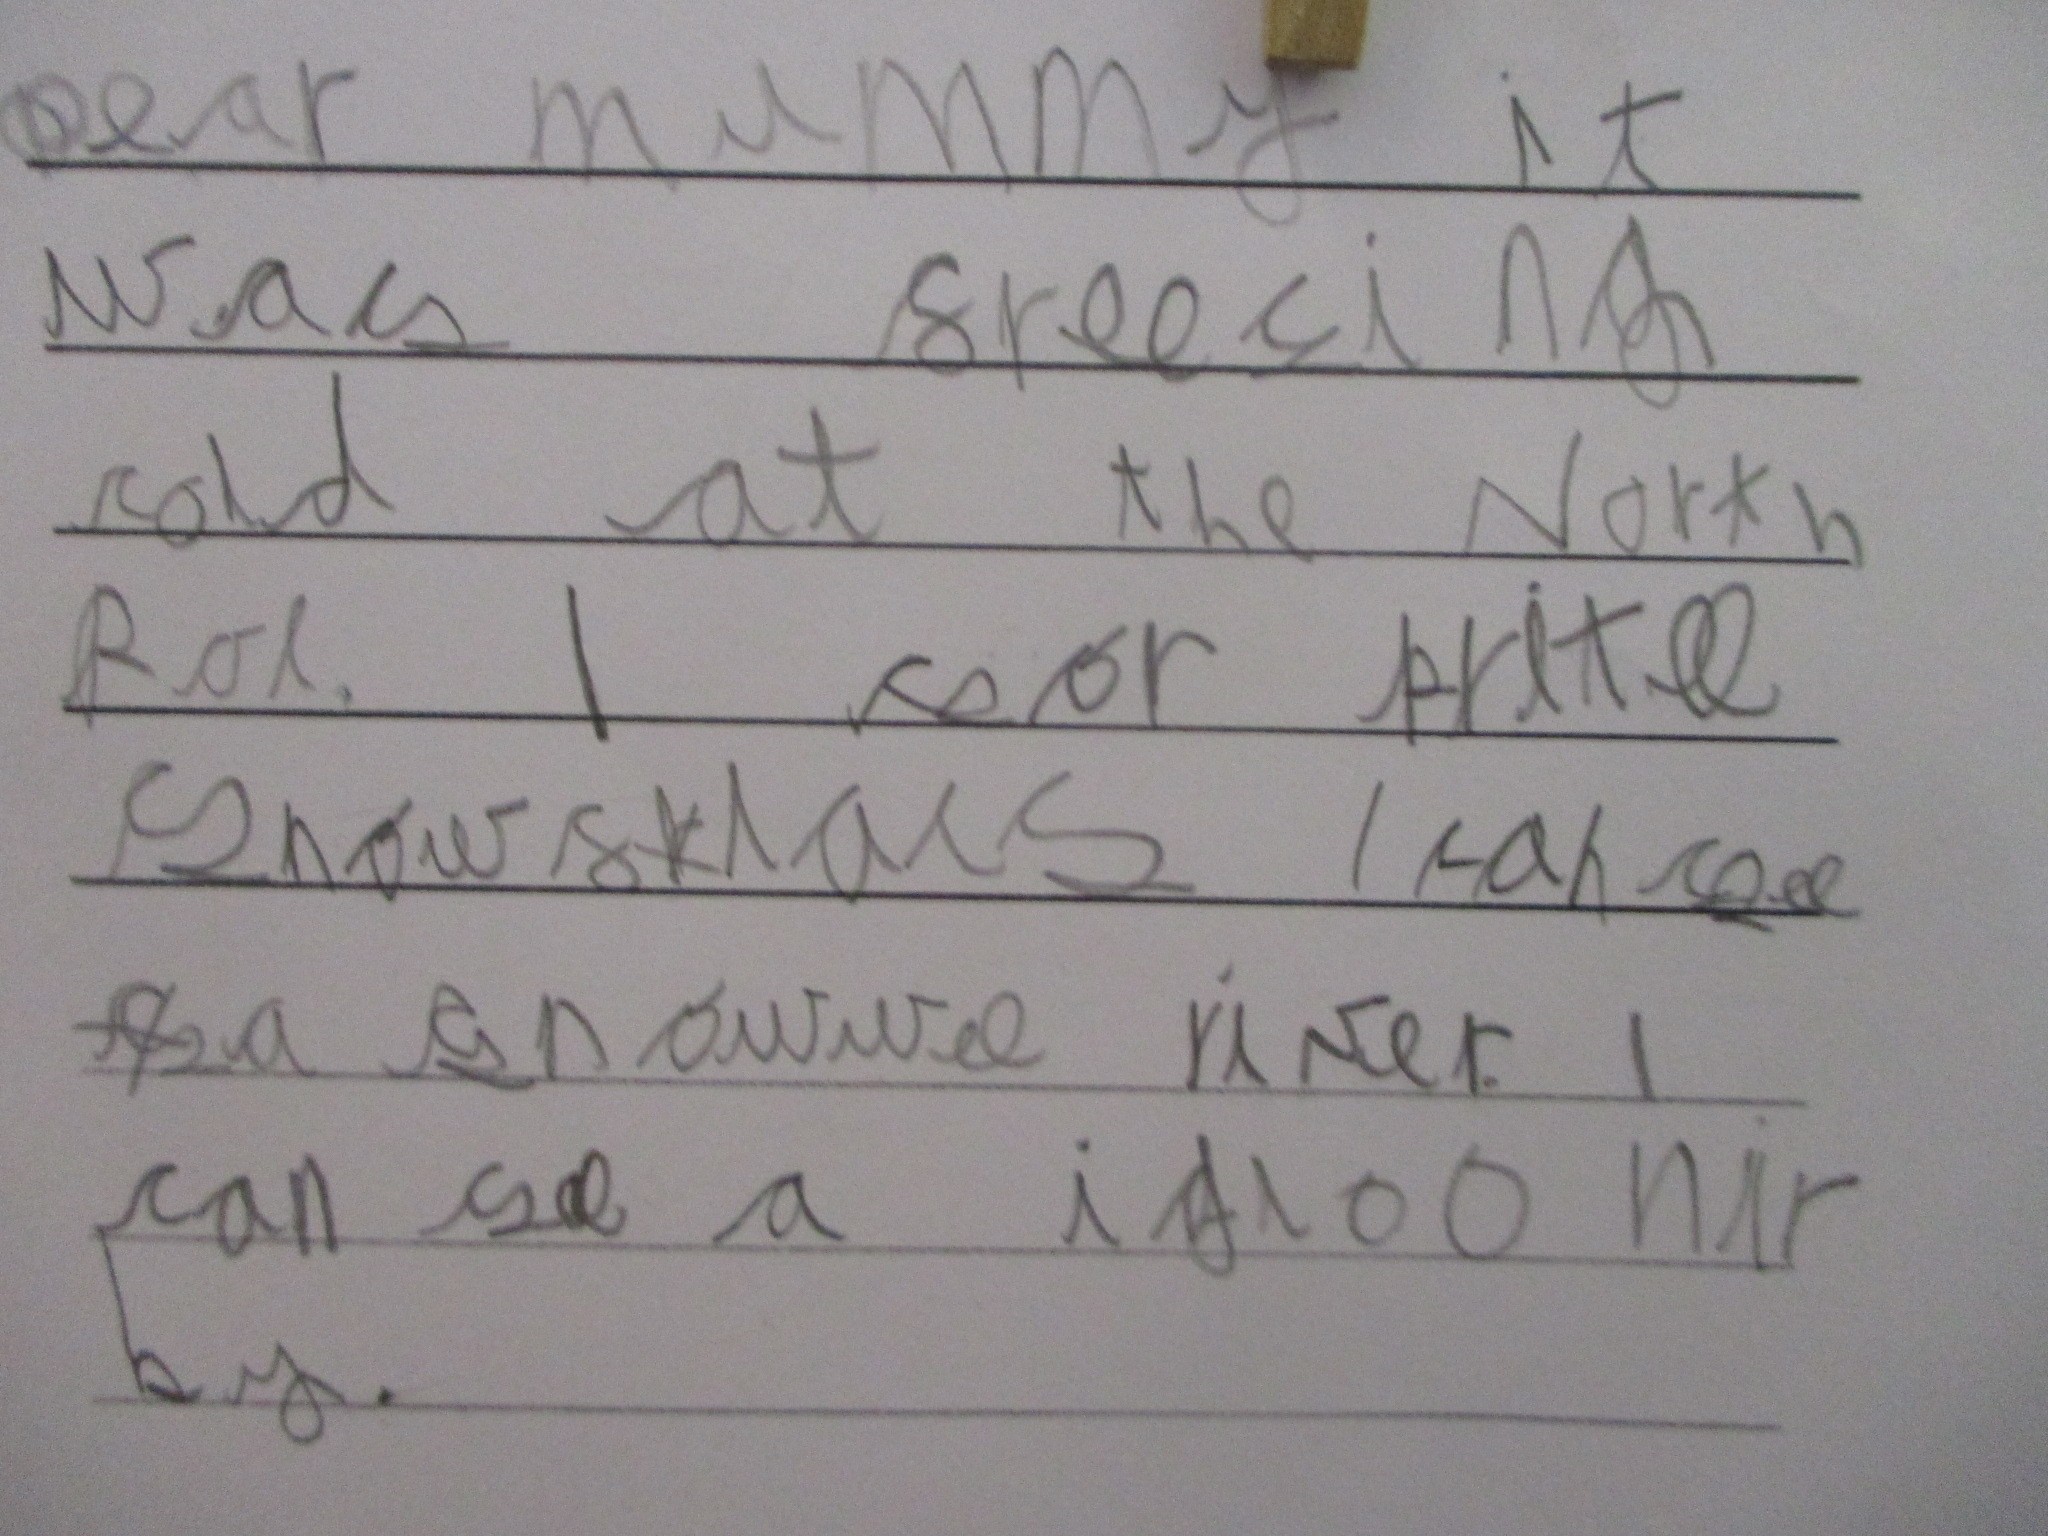 Dear mummy it
was freecing
cold at the North
Pol. I sor pritee
Snowfklacs I can see
a snowwee river. I
can see a igloo nir
by.